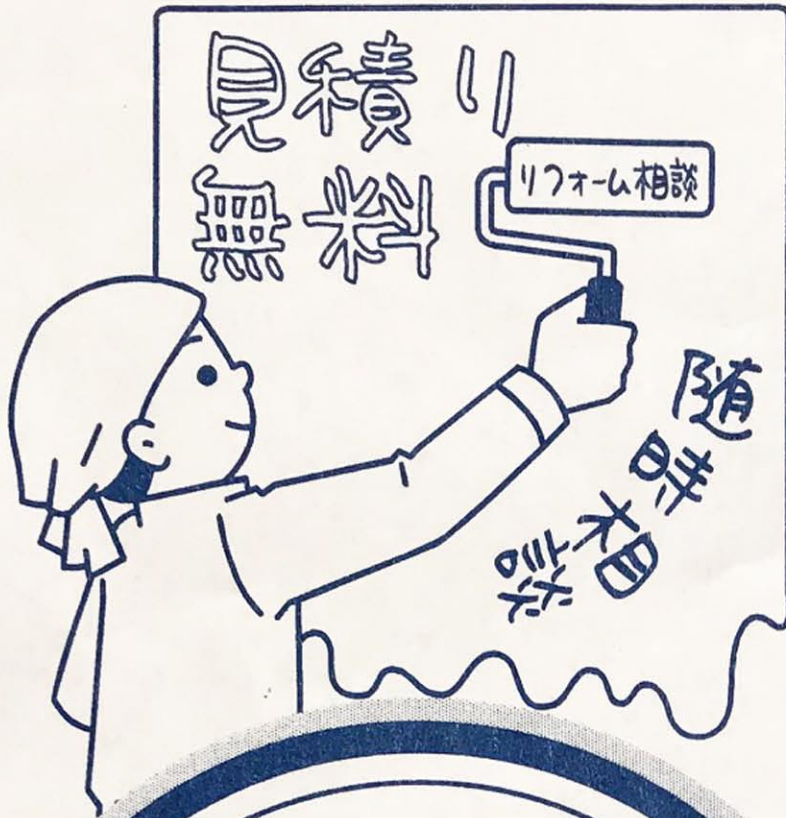 見積り
無料
リフォーム相談
随時相談